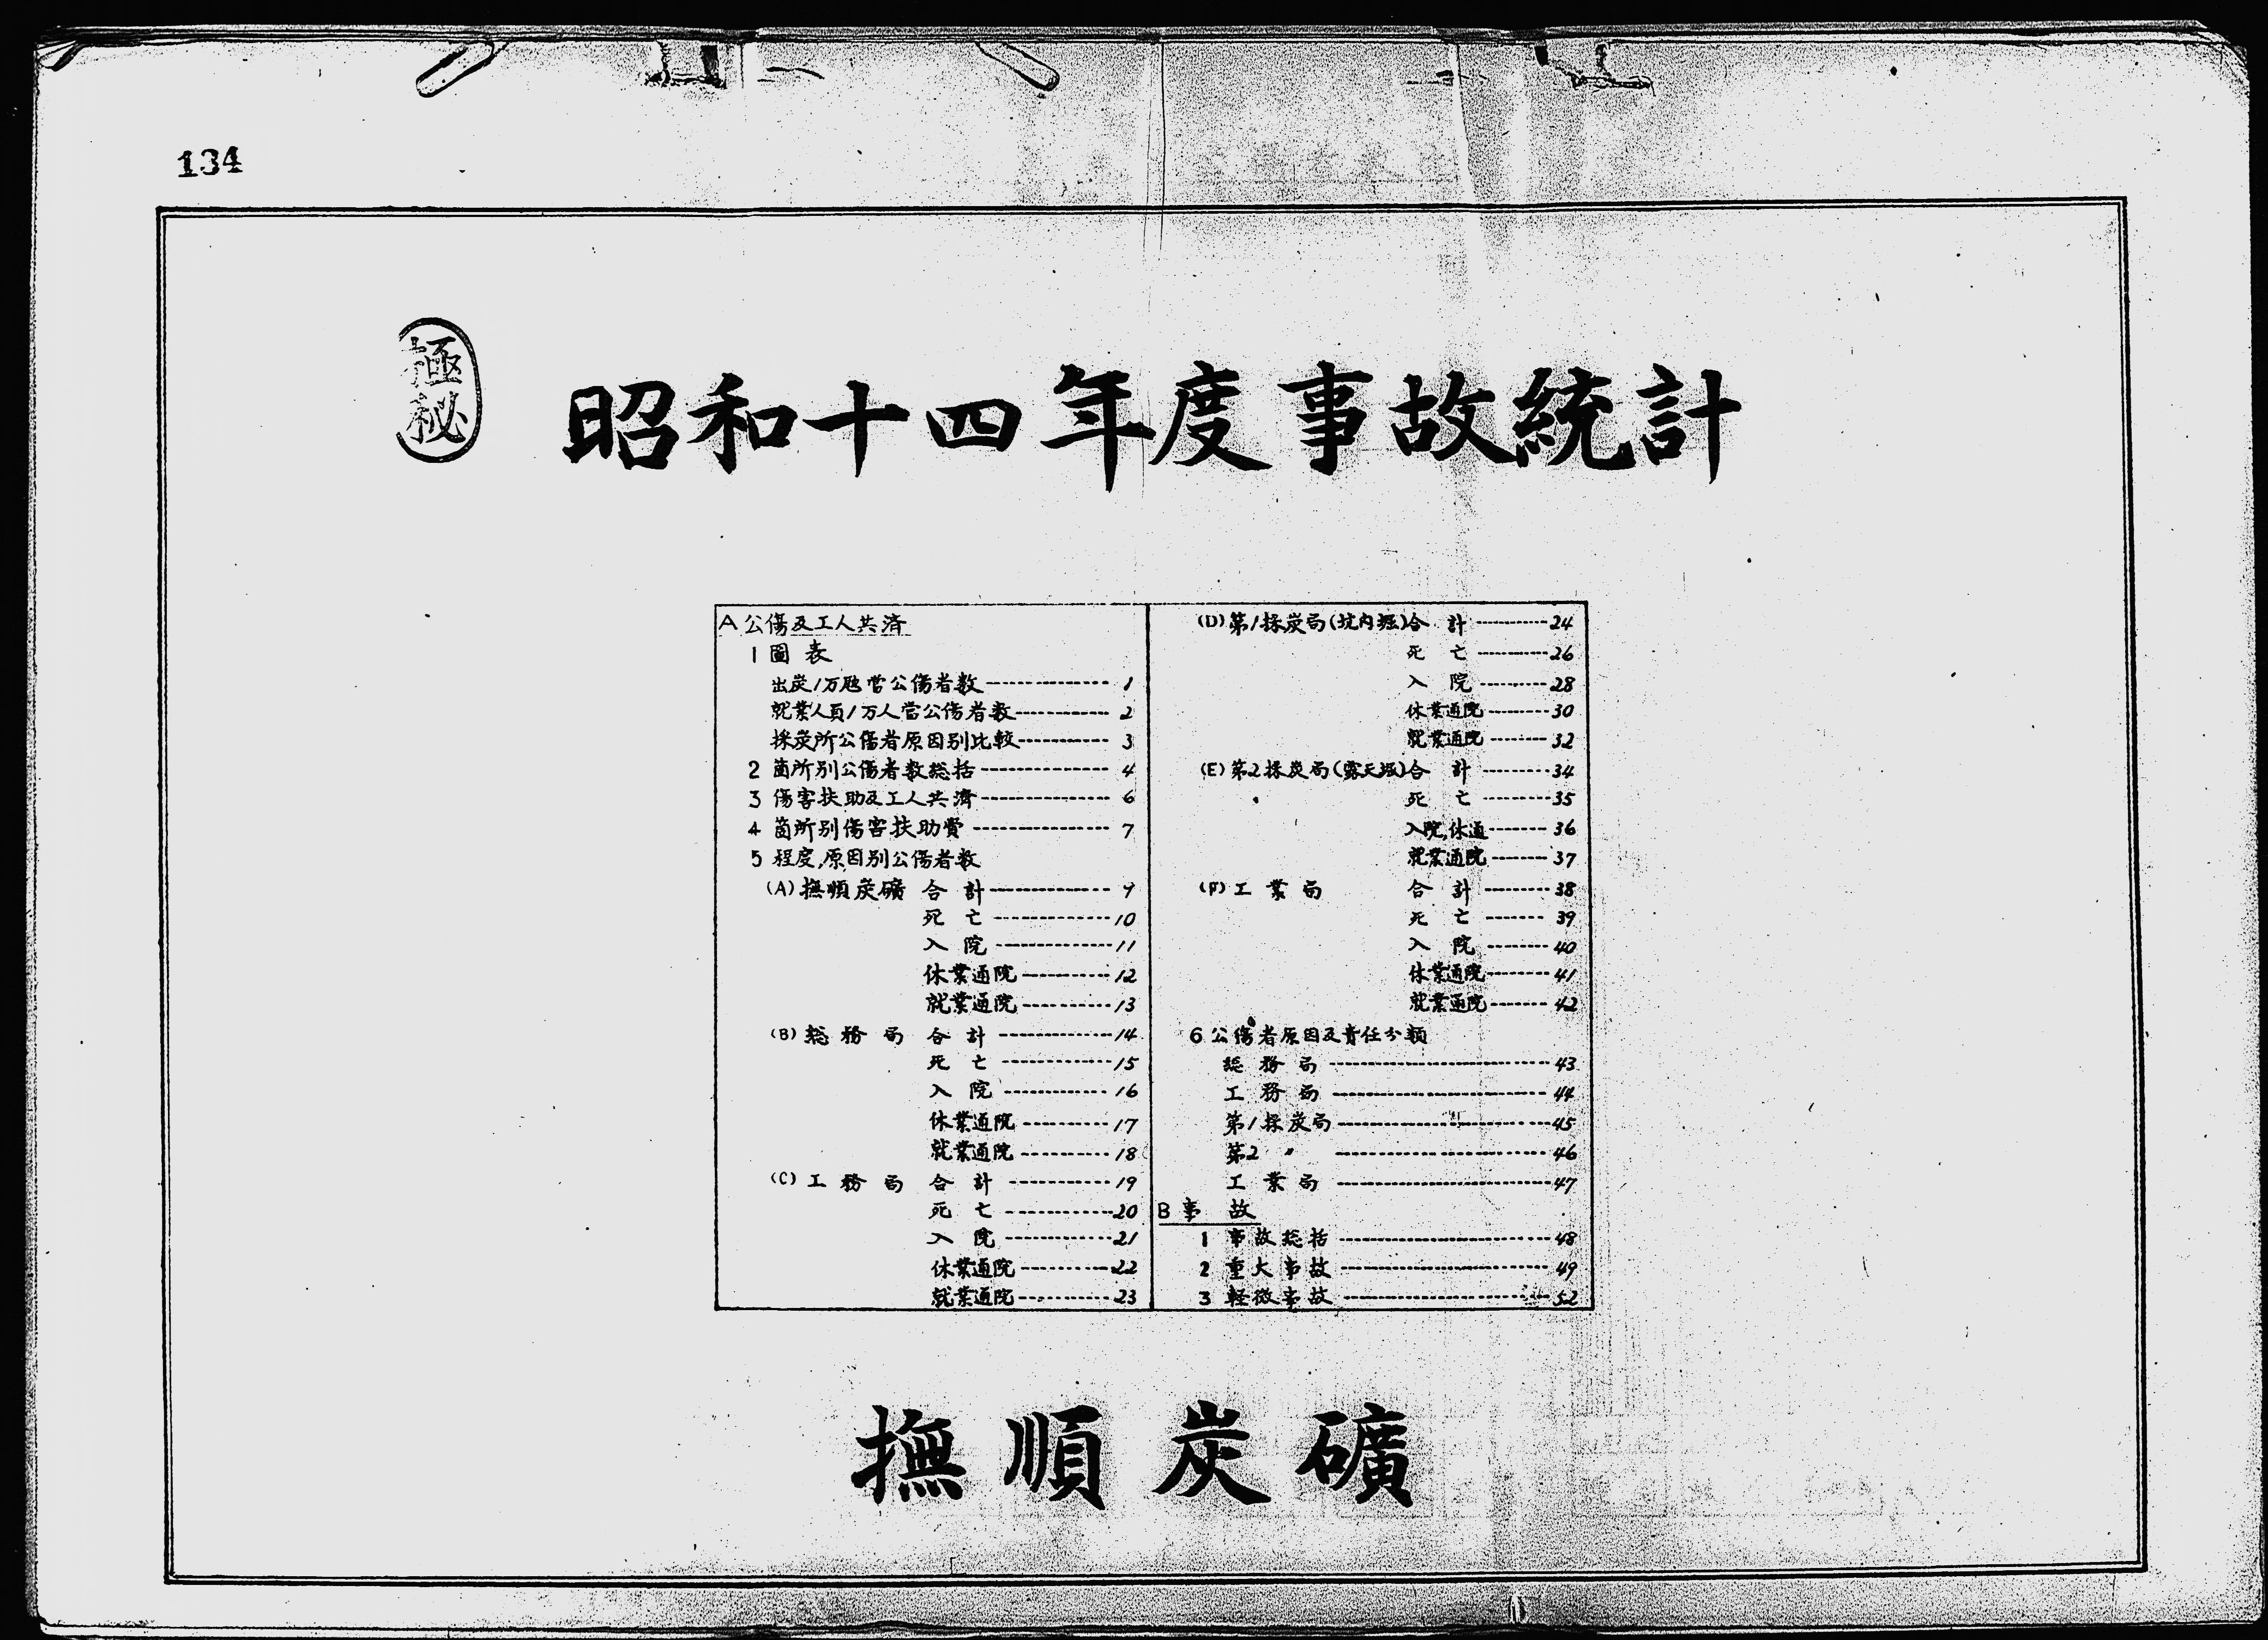 134
極秘
昭和十四年度事故統計
A 公傷及工人共済
1 圖表
出炭1万瓲當公傷者数 1
就業人員1万人當公傷者数 2
採炭所公傷者原因別比較 3
2 箇所別公傷者数総括 4
3 傷害扶助及工人共濟 6
4 箇所別傷害扶助費 7
5 程度,原因別公傷者数
(A) 撫順炭礦 合計 9
死亡 10
入院 11
休業通院 12
就業通院 13
(B) 総務局 合計 14
死亡 15
入院 16
休業通院 17
就業通院 18
(C) 工務局 合計 19
死亡 20
入院 21
休業通院 22
就業通院 23
(D) 第1採炭局(坑内堀)合計 24
死亡 26
入院 28
休業通院 30
就業通院 32
(E) 第2採炭局(露天堀)合計 34
死亡 35
入院,休通 36
就業通院 37
(F) 工業局 合計 38
死亡 39
入院 40
休業通院 41
就業通院 42
6 公傷者原因及責任分類
総務局 43
工務局 44
第1採炭局 45
第2 〃 46
工業局 47
B 事故
1 事故総括 48
2 重大事故 49
3 軽微事故 52
撫順炭礦